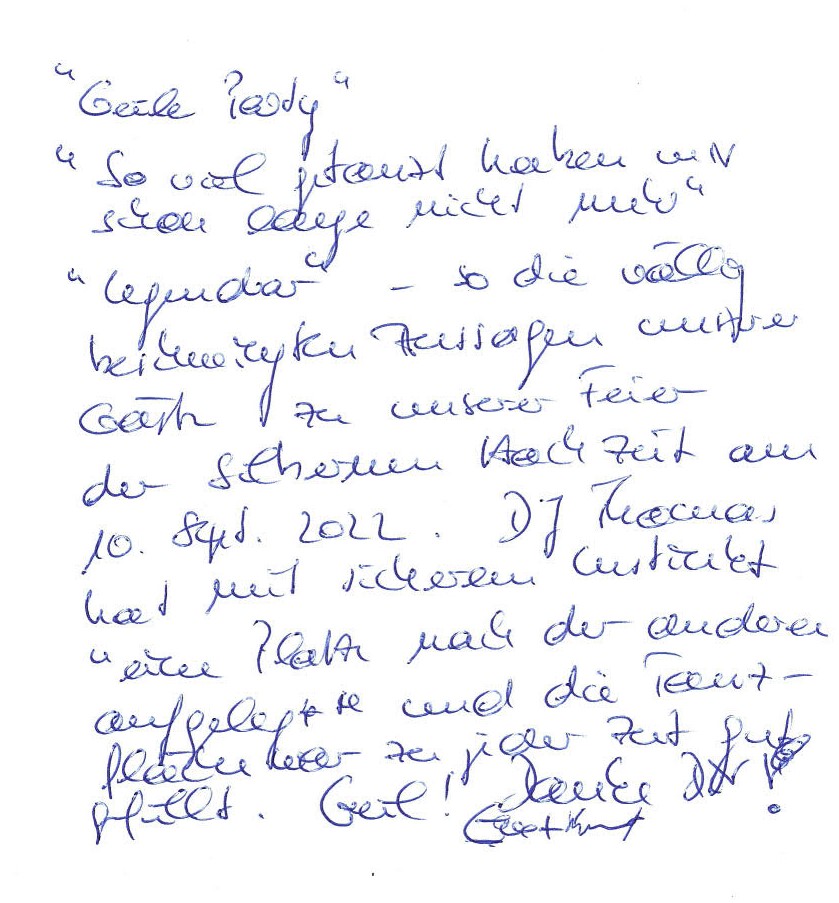 "Geile Party"
"So viel getanzt haben wir
schon lange nicht mehr"
"legendär" - so die völlig
beschwingten Aussagen unserer
Gäste zu unserer Feier
der silbernen Hochzeit am
10. Sept. 2022. DJ Thomas
hat mit sicherem Instinkt
"eine Platte nach der anderen
aufgelegt" und die Tanz-
fläche war zu jeder Zeit gut
gefüllt. Geil! Danke Dir!